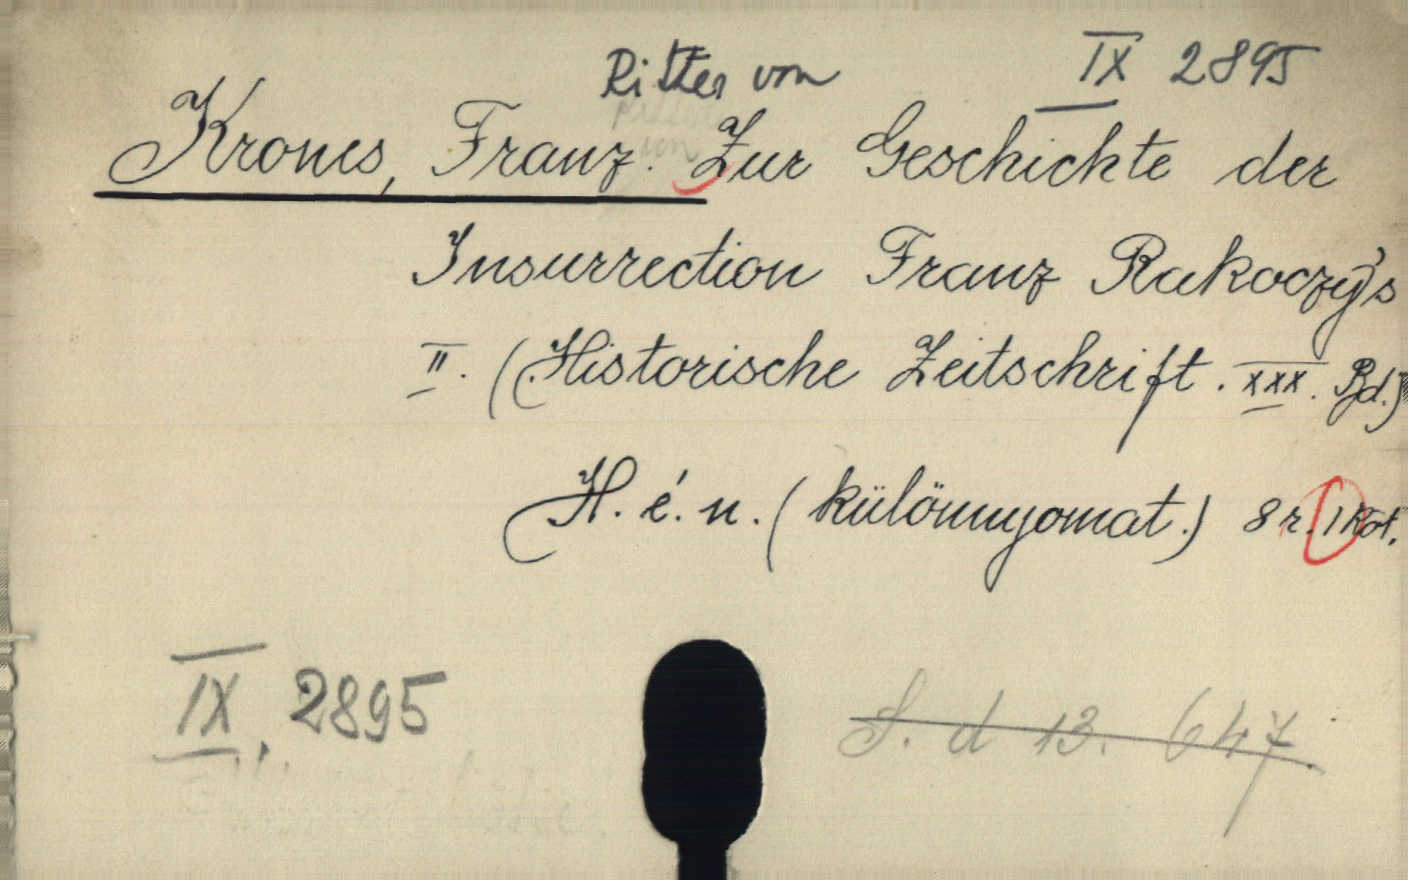 Ritter von IX 2895
Krones, Franz. Zur Geschichte der
Insurrection Franz Rakoczy's
II. (Historische Zeitschrift. XXX. Bd.)
H. é. n. (különnyomat.) 8 r. 1 Köt.
IX, 2895
S. d 13. 647.